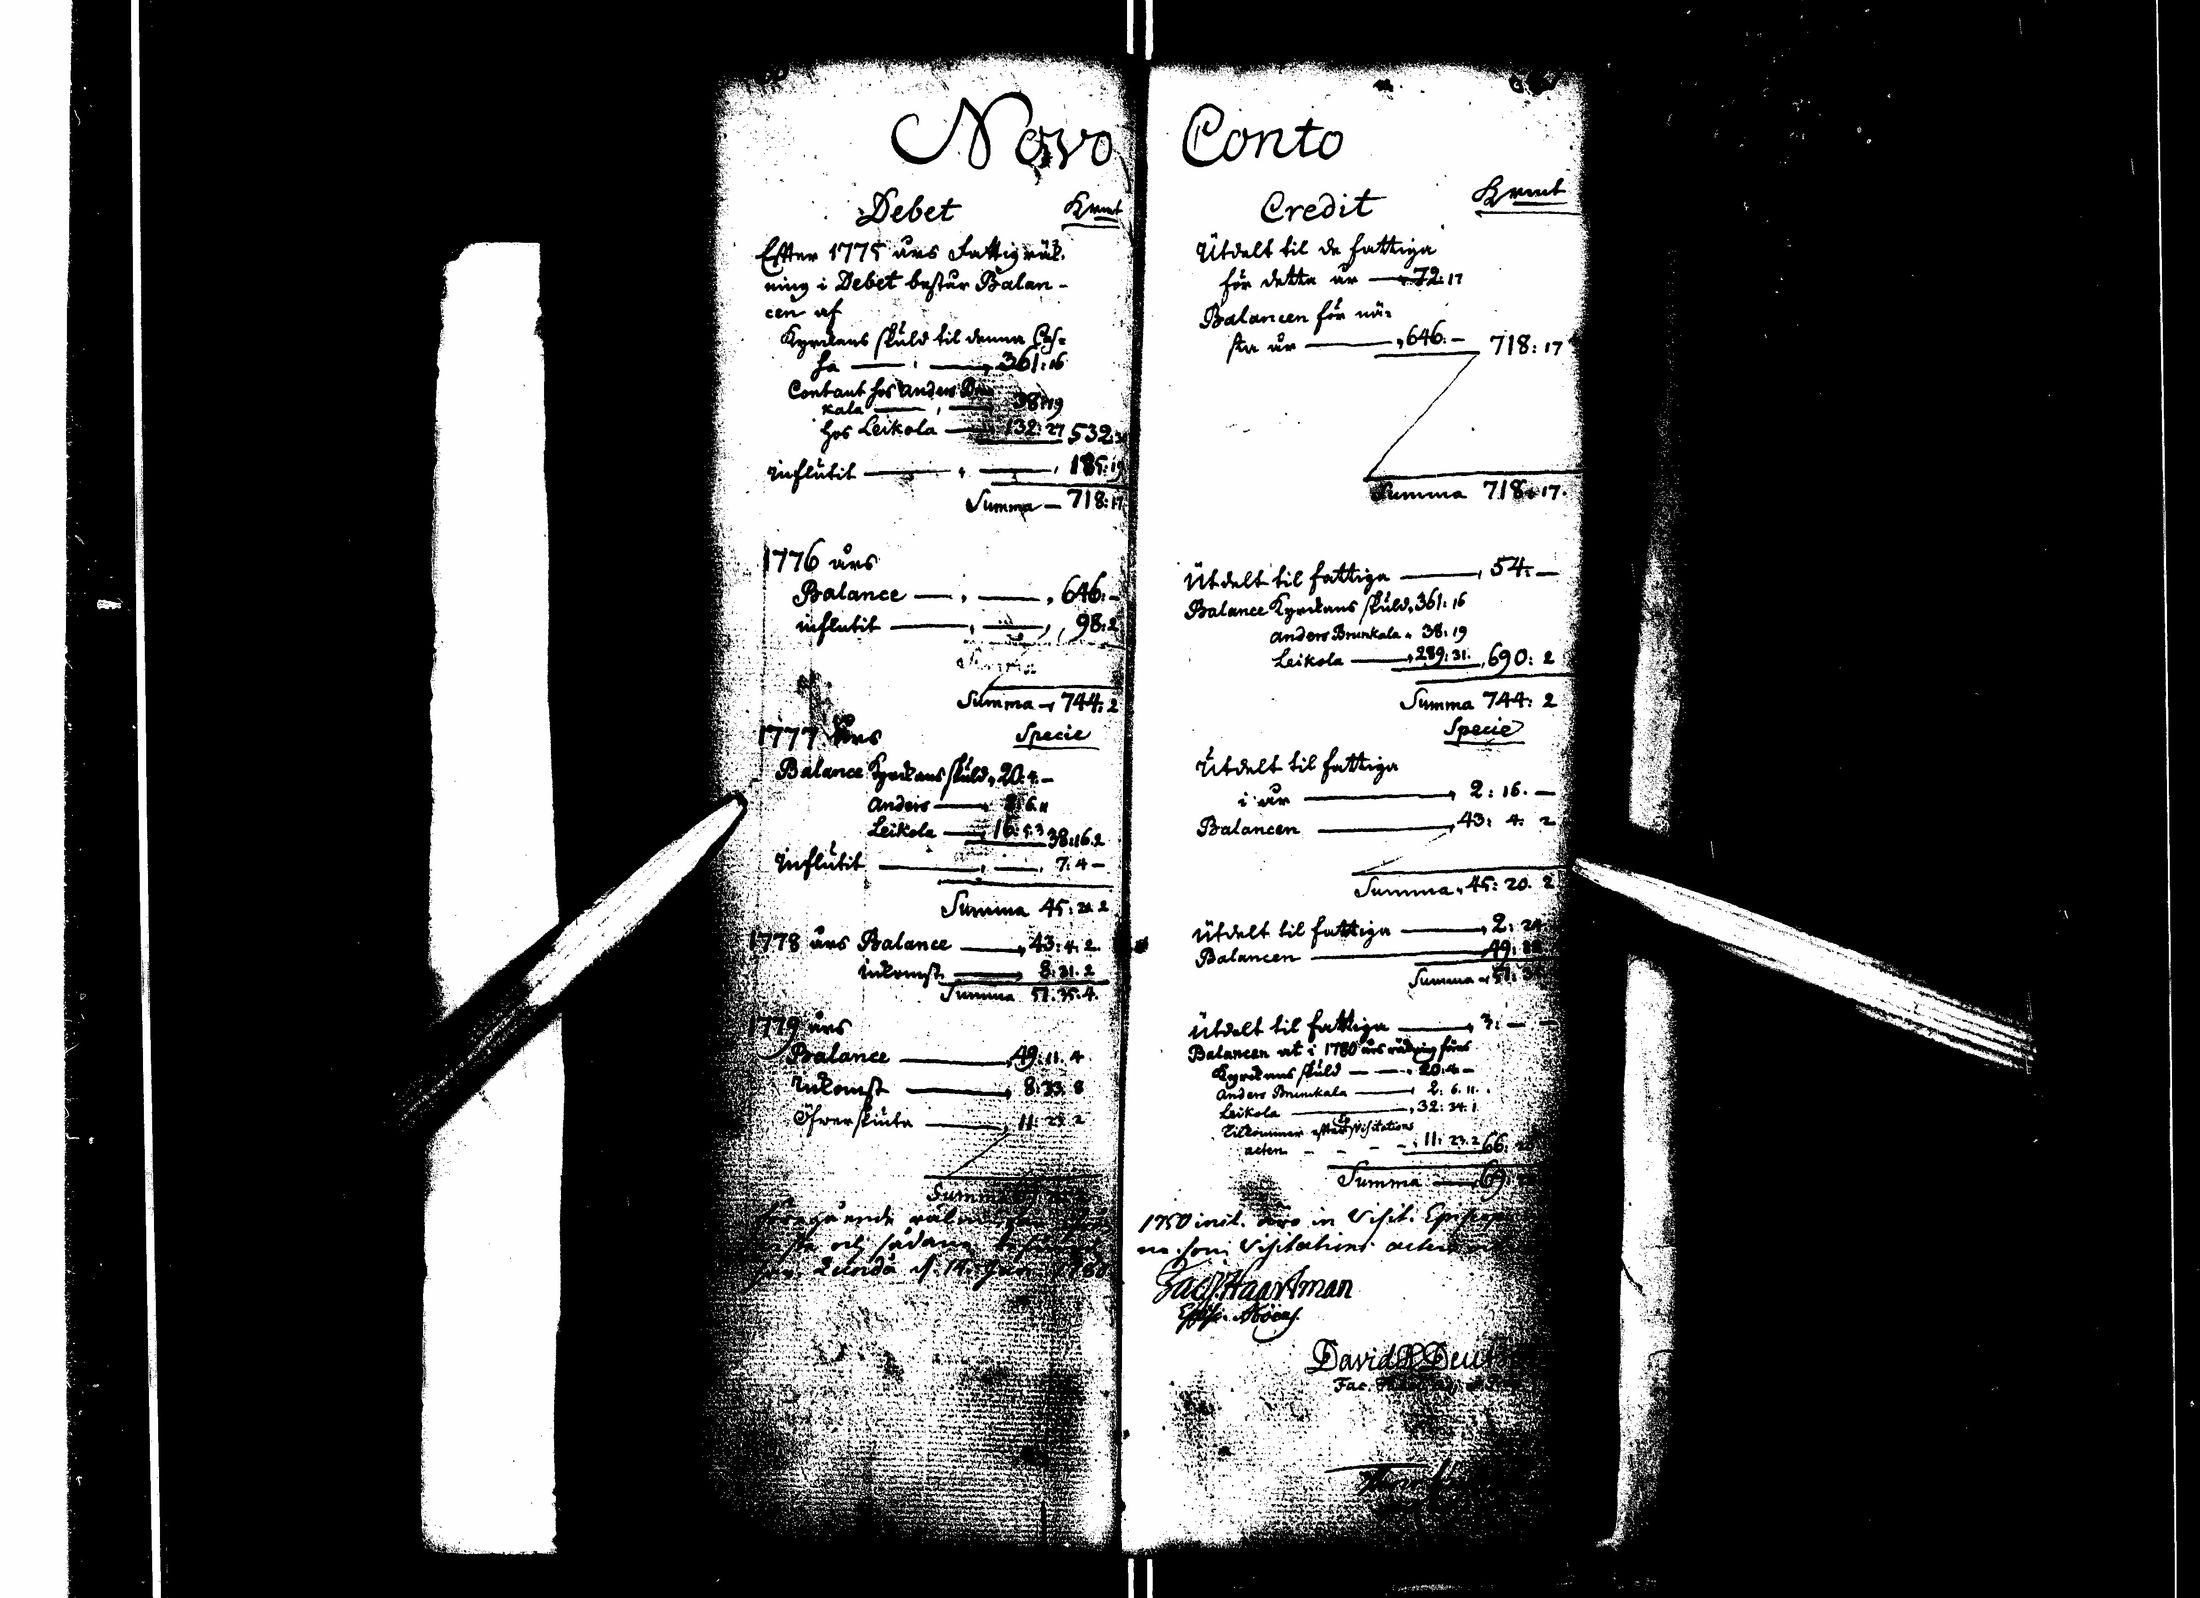 Novo
Debet Kmt
Efter 1775 års Fattigräk:
ning i Debet består Balan-
cen af
Kyrckans skuld til denna Cas-
sa — 361:16
Contant hos Anders Brun
kala — 38:19
hos Leikola — 132:27 532:
Influtit — 185:19
Summa — 718:17
1776 års
Balance — 646:—
influtit — 98:2
Summa — 744:2
1777 års Specie
Balance Kyrckans skuld, 20.4.—
Anders — 2:6.11
Leikola — 16:5.3 38:16.2
Influtit — 7:4—
Summa 45:20.2
1778 års Balance — 43:4.2.
inkomst — 8:31.2
Summa 51:35.4.
1779 års
Balance — 49:11.4
Inkomst — 8:33.8
Öfverskiuta — 11:23.2
Summa
Föregående räkningar
och sådane
d. 14. Jan. 1780
Conto
Credit Kmt
Utdelt til de fattiga
för detta år — 72:17
Balancen för nä-
sta år — 646.— 718:17
Summa 718:17.
Utdelt til fattiga — 54:—
Balance Kyrckans skuld, 361:16
Anders Brunkala 38:19
Leikola — 289:31. 690:2
Summa 744:2
Specie
Utdelt til fattiga
i år — 2:16.—
Balancen — 43:4:2
Summa 45:20.2
Utdelt til fattiga — 2:24
Balancen — 49:
Summa 51:
Utdelt til fattiga — 3:— —
Balancen at i 1780 års räkning föras
Kyrckans skuld — 20.4—
Anders Brunkala — 2.6.11.
Leikola — 32:34.1
Tilkommer efter Visitations
acten — 11:23.2 66:
Summa — 69:
in Visit. Episcop
som Visitations acten
Jac. Haartman
Episc. Aboens.
David Deut
Fac.